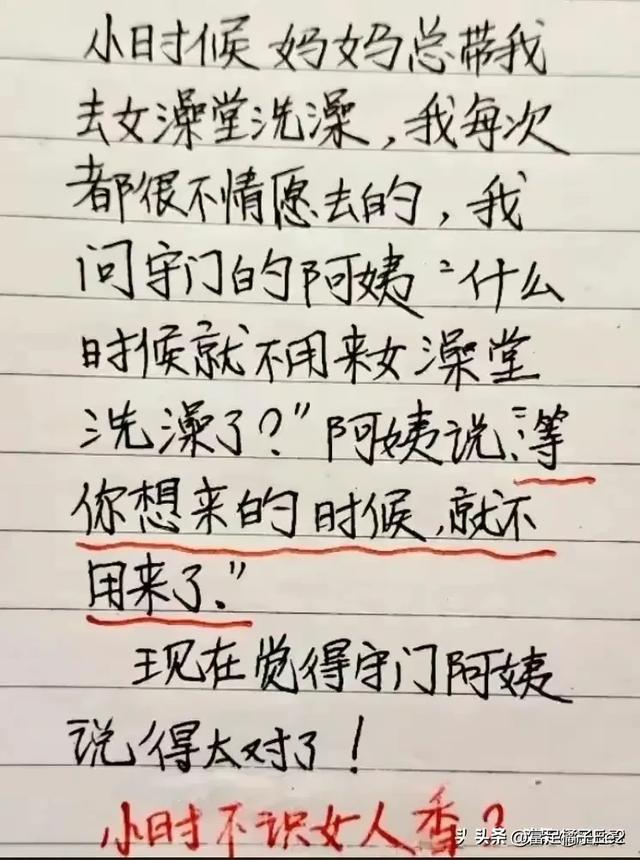 小时候妈妈总带我
去女澡堂洗澡，我每次
都很不情愿去的，我
问守门的阿姨“什么
时候就不用来女澡堂
洗澡了？”阿姨说：“等
你想来的时候，就不
用来了。”
现在觉得守门阿姨
说得太对了！
小时不识女人香？
头条